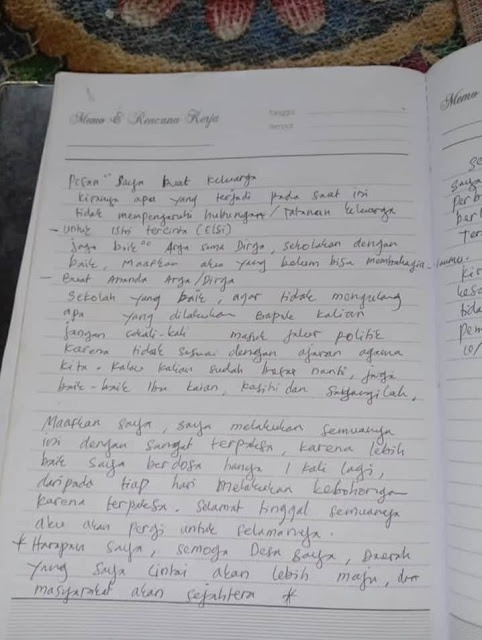 Memo & Rencana Kerja
Tanggal
Tempat
Pesan" Saya buat keluarga
kiranya apa yang terjadi pada saat ini
tidak mempengaruhi hubungan / tatanan keluarga
- untuk istri tercinta (Elsi)
jaga baik" Arga sama Dirga, sekolahan dengan
baik, Maafkan aku yang belum bisa membahagia-kanmu.
- Buat Ananda Arga/Dirga
Sekolah yang baik, agar tidak mengulang
apa yang dilakukan Bapak kalian
jangan sekali-kali masuk jalur politik
karena tidak sesuai dengan ajaran agama
kita. Kalau kalian sudah besar nanti, jaga
baik-baik Ibu kalian, kasihi dan sayangilah.
Maafkan saya, saya melakukan semuanya
ini dengan sangat terpaksa, karena lebih
baik saya berdosa hanya 1 kali lagi,
daripada tiap hari melakukan kebohongan
karena terpaksa. Selamat tinggal semuanya
aku akan pergi untuk selamanya.
* Harapan saya, semoga Desa saya, Daerah
yang saya cintai akan lebih maju, dan
masyarakat akan sejahtera *
Memo